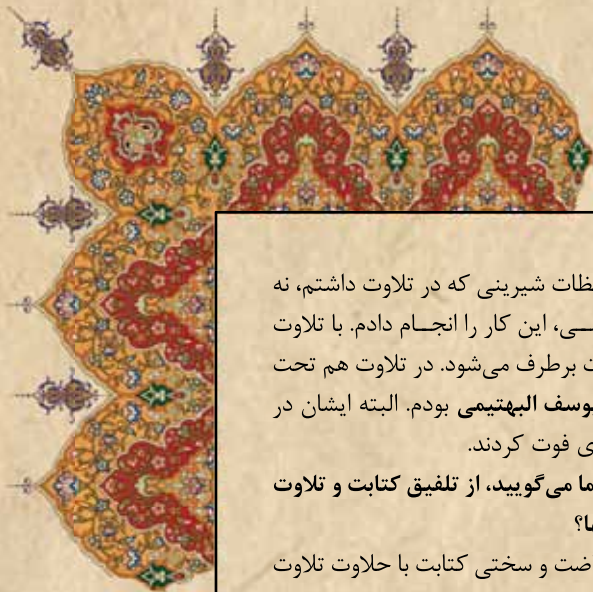 شیرینی که در تلاوت داشتم، نه
این کار را انجـام دادم. با تلاوت
برطرف می‌شود. در تلاوت هم تحت
البهتیمی بودم. البته ایشان در
فوت کردند.
می‌گویید، از تلفیق کتابت و تلاوت
و سختی کتابت با حلاوت تلاوت